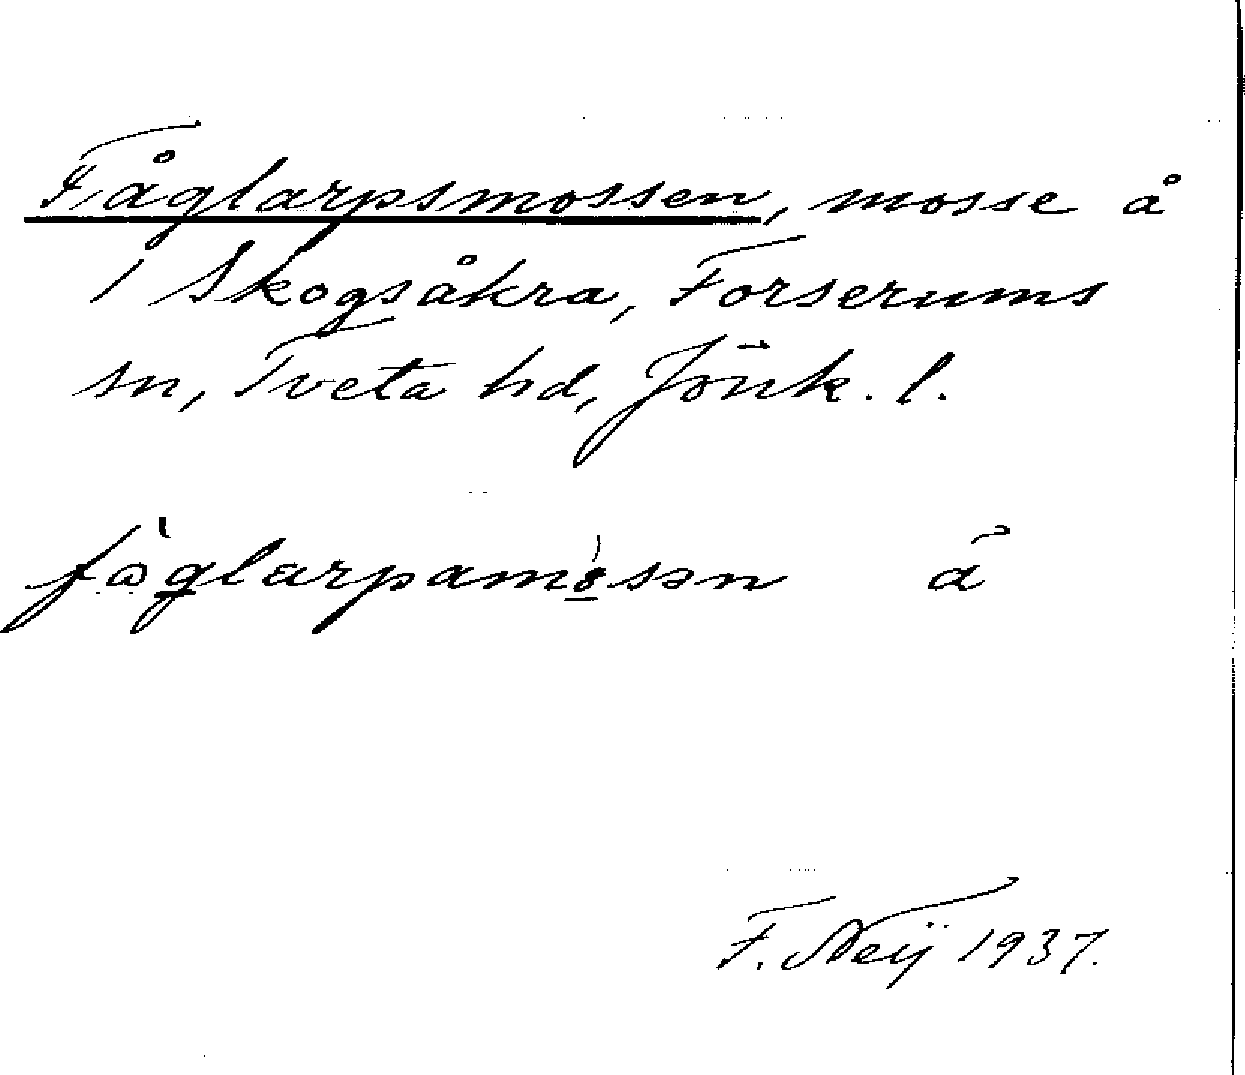 Fåglarpsmossen, mosse å
1 Skogsåkra, Forserums
sn, Tveta hd, Jönk. l.
fåglarpamo̲sən å
F. Neij 1937.